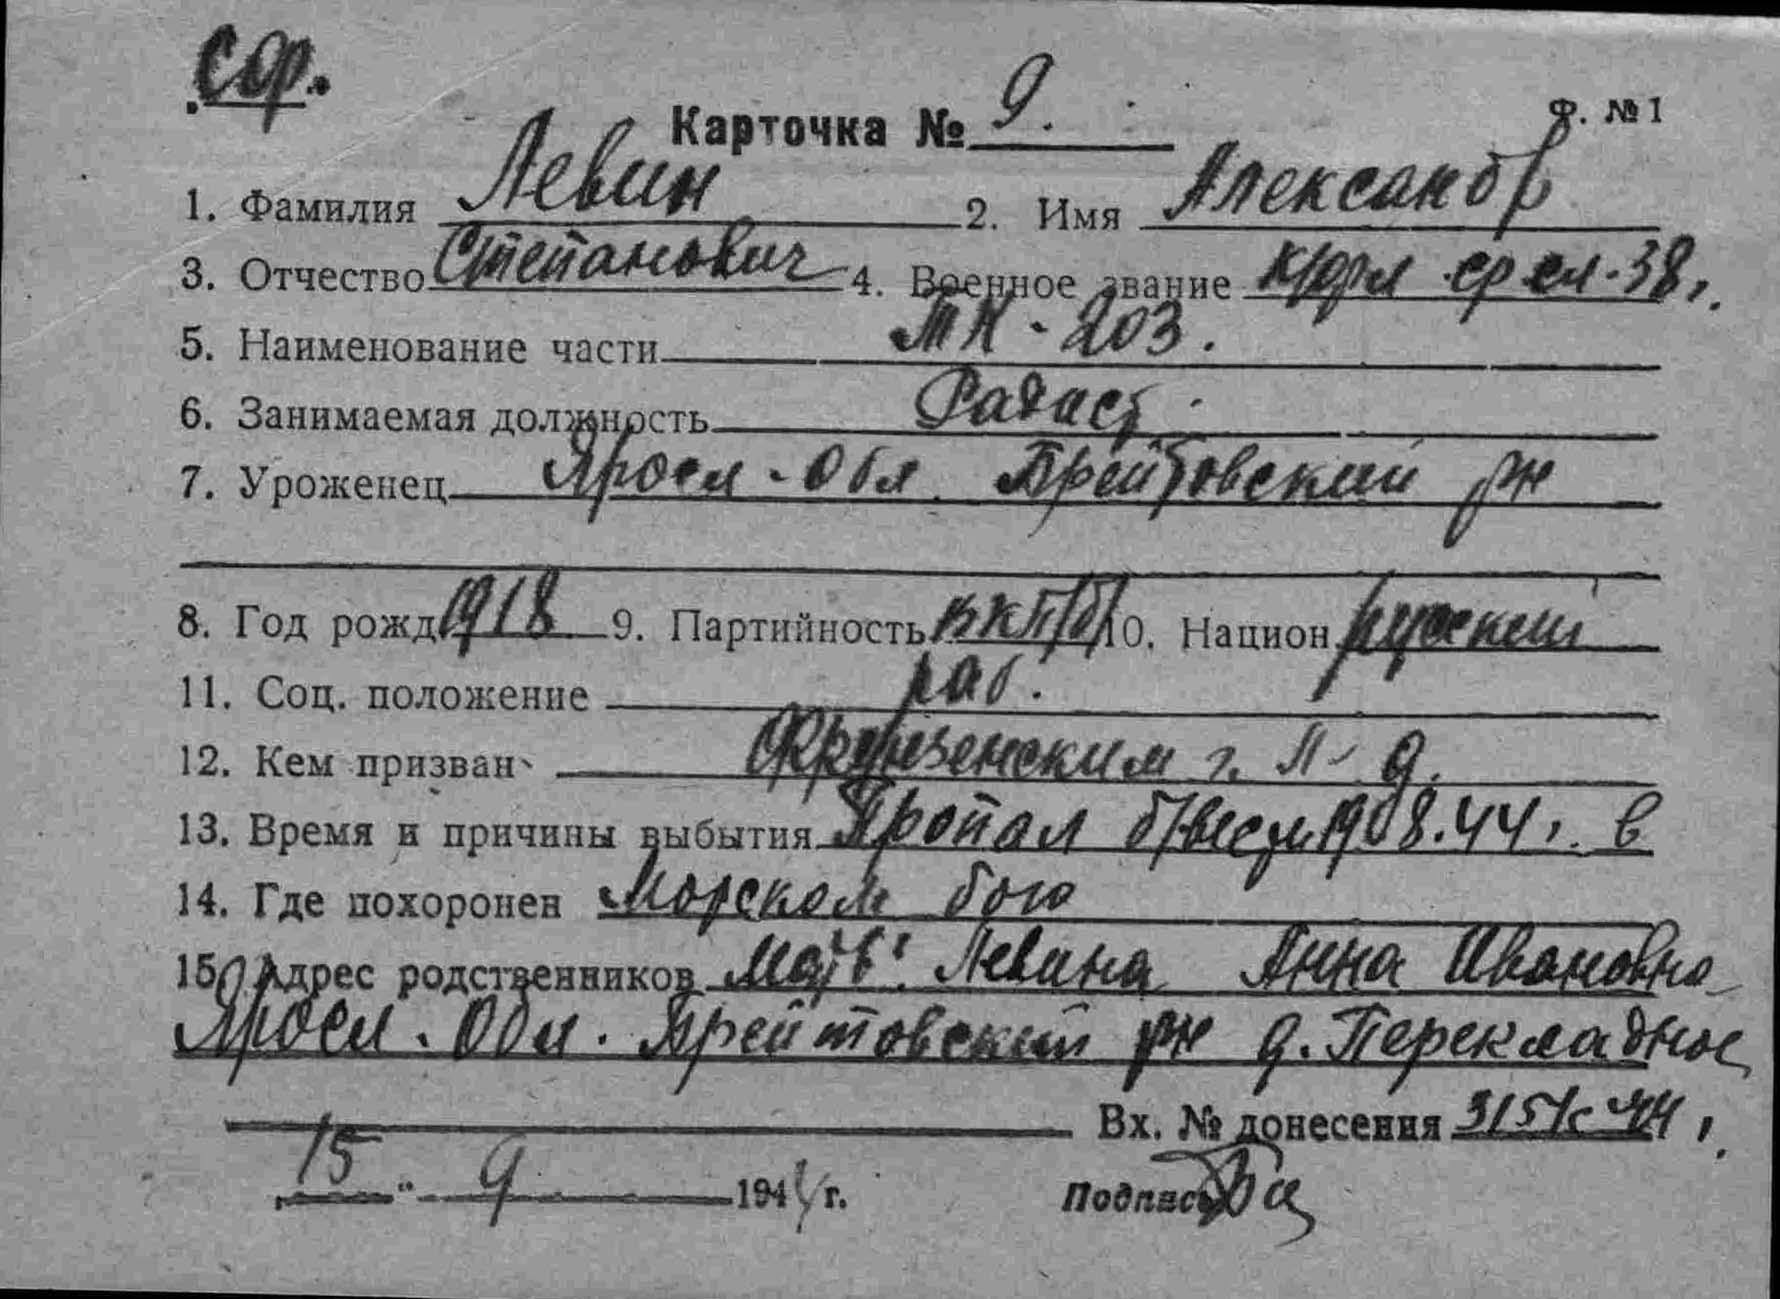 СФ.
Карточка № 9.
Ф. № 1
1. Фамилия Левин 2. Имя Александр
3. Отчество Степанович 4. Военное звание ср сл. 38 г.
5. Наименование части ТК-203.
6. Занимаемая должность Радист
7. Уроженец Яросл. Обл. Брейтовский рн
8. Год рожд 1918 9. Партийность ВКП/б/ 10. Национ русский
11. Соц. положение раб.
12. Кем призван Фрунзенским г. Л-д.
13. Время и причины выбытия Пропал б/вести 19 08.44 г. в
14. Где похоронен Морском бою
15. Адрес родственников Мать: Левина Анна Ивановна
Яросл. Обл. Брейтовский рн д. Перекладное
Вх. № донесения 315/с 44 г.
15 " 9 1944 г. Подпись